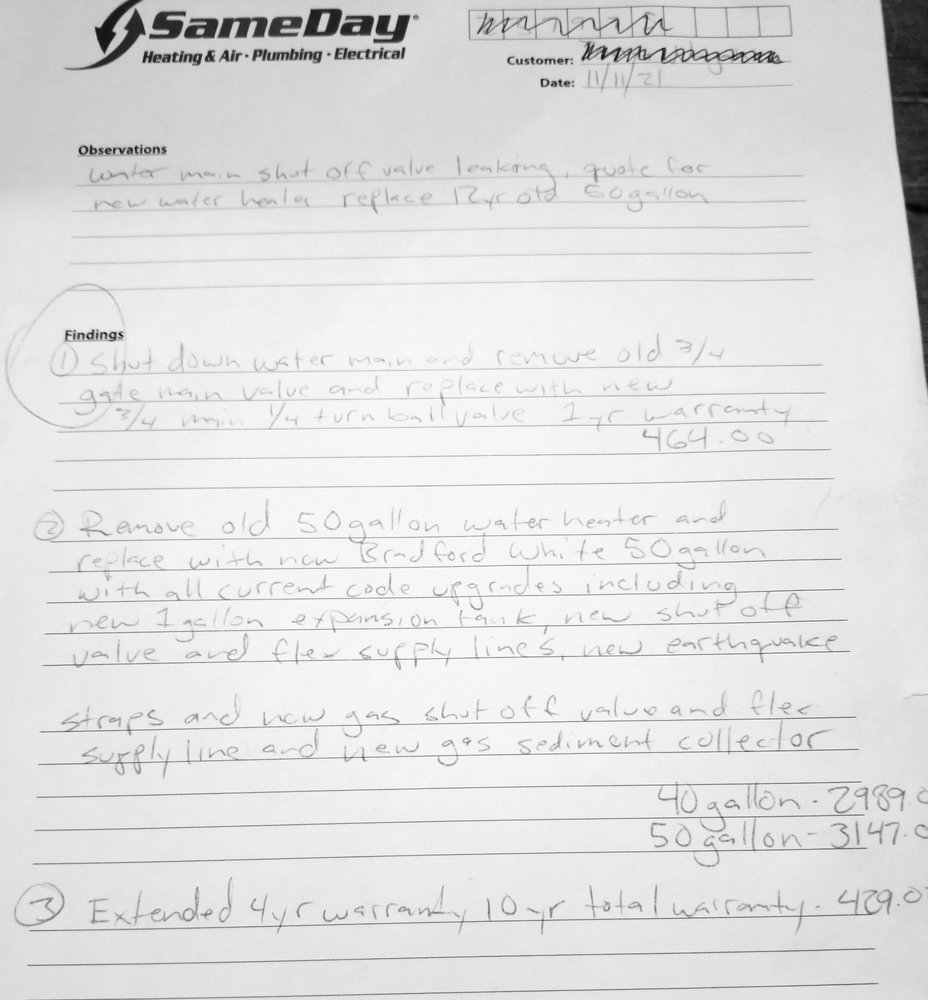 SameDay
Heating & Air · Plumbing · Electrical
Customer:
Date: 11/11/21
Observations
water main shut off valve leaking, quote for
new water heater replace 12yr old 50gallon
Findings
① Shut down water main and remove old 3/4
gate main valve and replace with new
3/4 main 1/4 turn ball valve 1yr warranty
464.00
② Remove old 50gallon water heater and
replace with new Bradford White 50gallon
with all current code upgrades including
new 1gallon expansion tank, new shut off
valve and flex supply lines, new earthquake
straps and new gas shut off valve and flex
supply line and new gas sediment collector
40gallon - 2989.0
50gallon - 3147.0
③ Extended 4yr warranty 10yr total warranty - 429.0